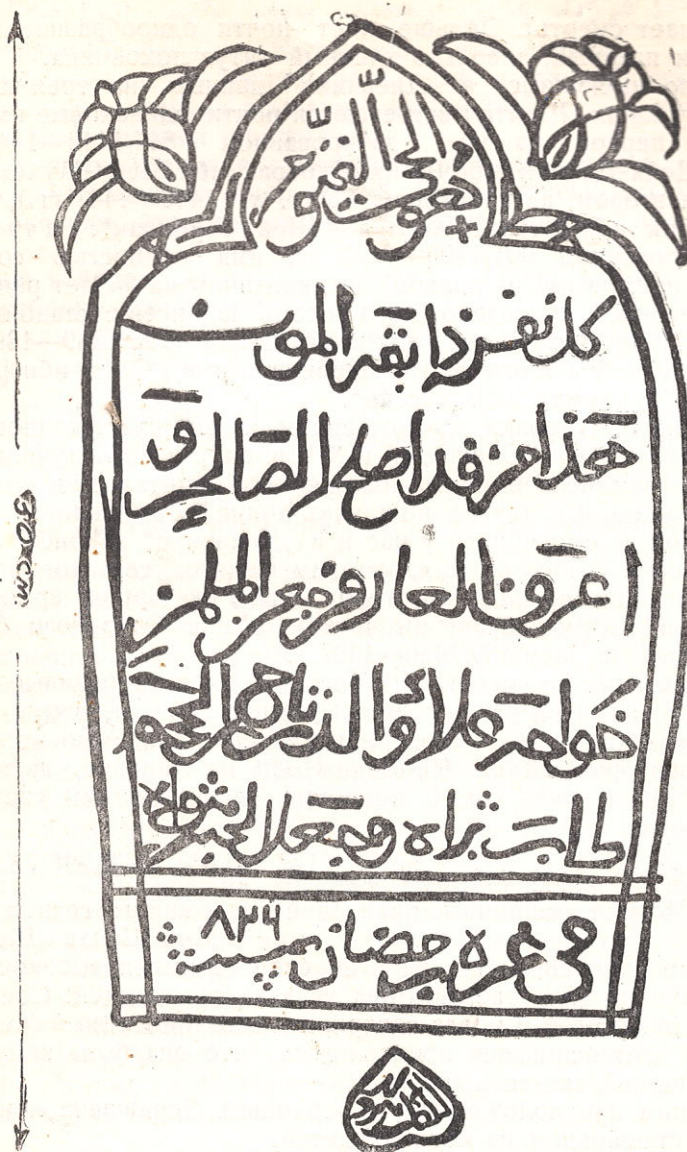 هو الحي القيوم
كل نفس ذايقة الموت
هذا مرقد اصلح الصالحين و
اعرف العارفين معين
خواجه علاؤالدين تاج
طاب ثراه وجعل الجنة مثواه
في غرة رمضان سنة ٨٣٦
30 см